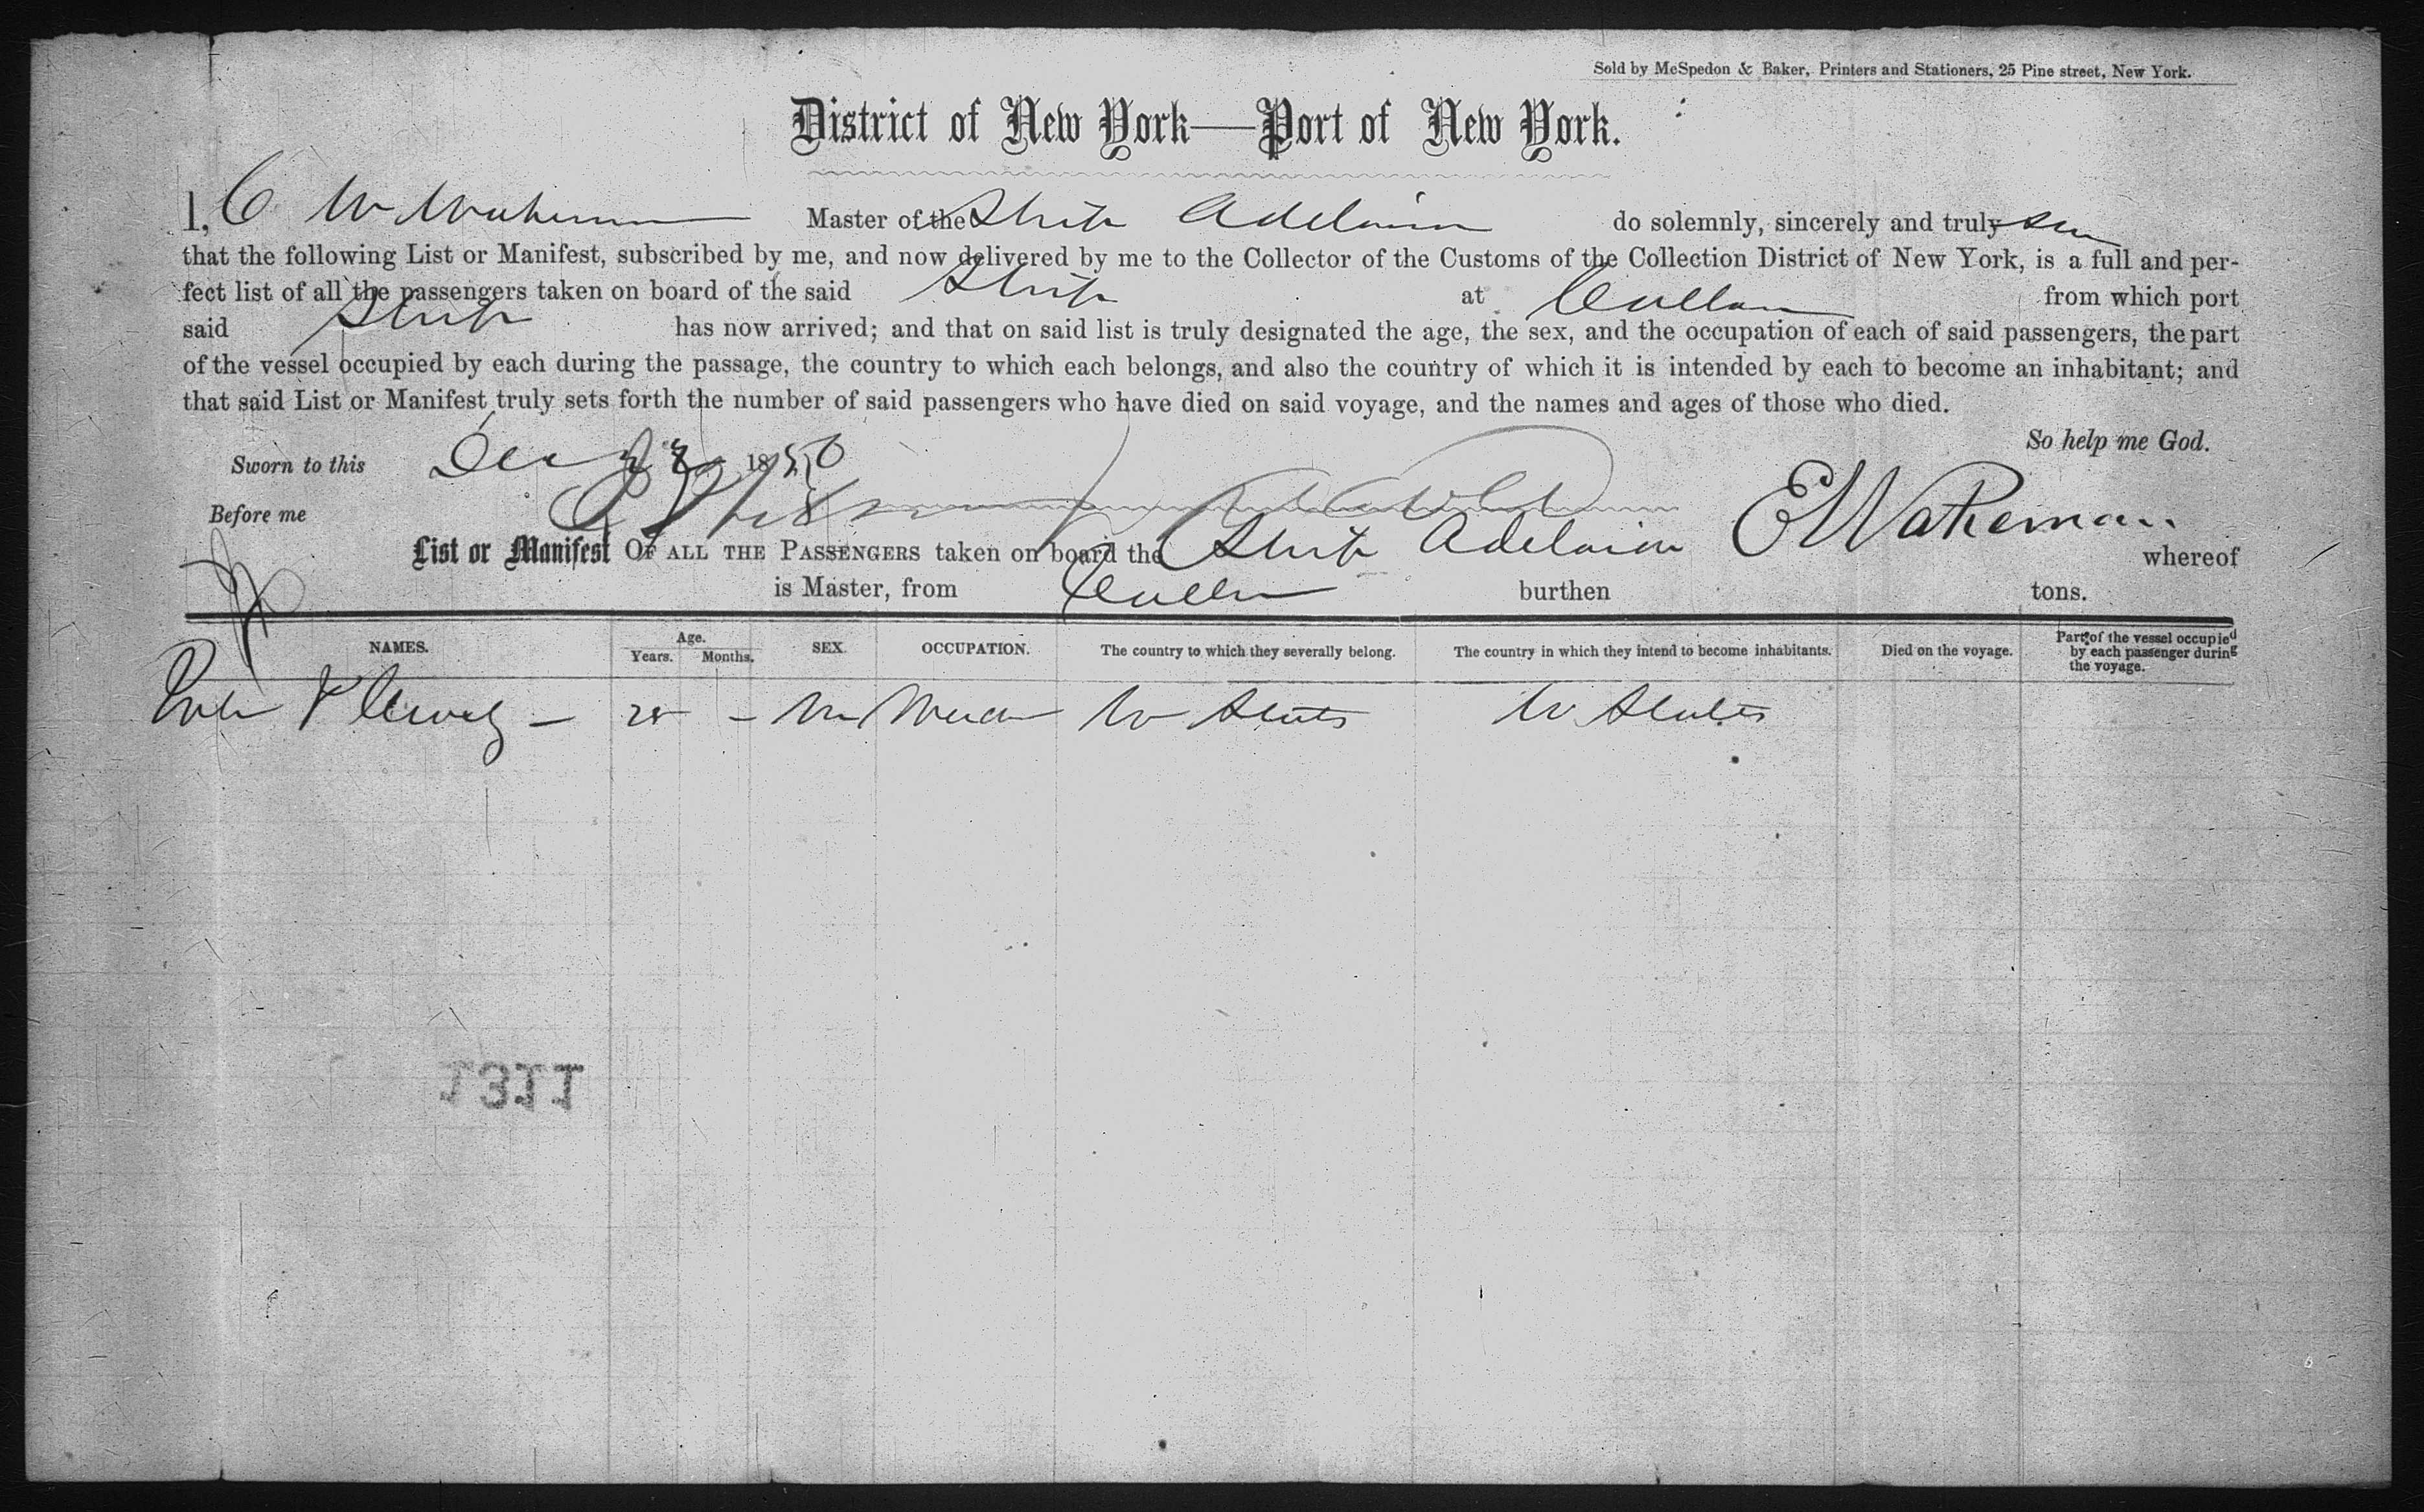 Sold by McSpedon & Baker, Printers and Stationers, 25 Pine street, New York.
District of New York—Port of New York.
I, Master of the Ship Adelaide do solemnly, sincerely and truly
that the following List or Manifest, subscribed by me, and now delivered by me to the Collector of the Customs of the Collection District of New York, is a full and per-
fect list of all the passengers taken on board of the said Ship at Callao from which port
said Ship has now arrived; and that on said list is truly designated the age, the sex, and the occupation of each of said passengers, the part
of the vessel occupied by each during the passage, the country to which each belongs, and also the country of which it is intended by each to become an inhabitant; and
that said List or Manifest truly sets forth the number of said passengers who have died on said voyage, and the names and ages of those who died.
So help me God.
Sworn to this Dec 18
Before me
E Wakeman
List or Manifest OF ALL THE PASSENGERS taken on board the Ship Adelaide whereof
is Master, from Callao burthen tons.
NAMES. Age. Years. Months. SEX. OCCUPATION. The country to which they severally belong. The country in which they intend to become inhabitants. Died on the voyage. Part of the vessel occupied by each passenger during the voyage.
— - M U States U States
1311